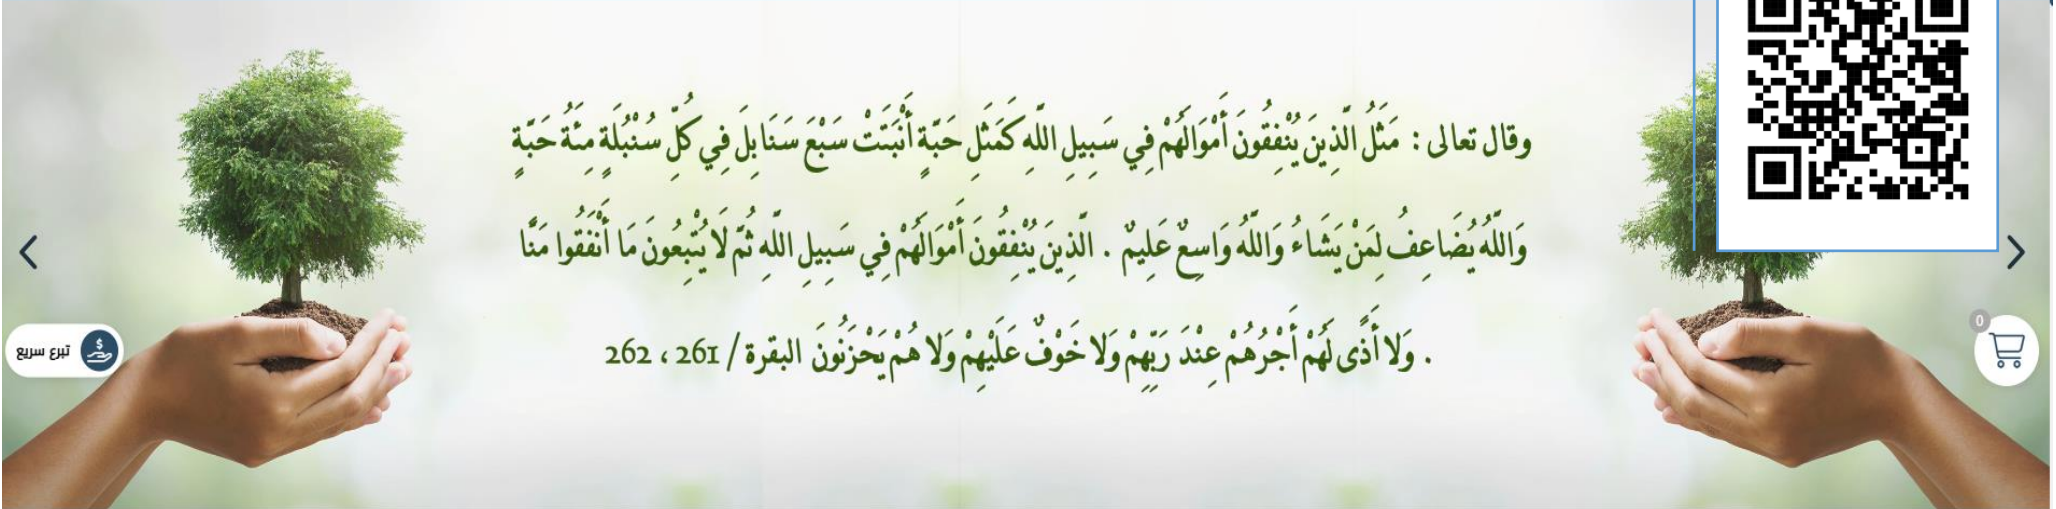 وقال تعالى : مَثَلُ الَّذِينَ يُنْفِقُونَ أَمْوَالَهُمْ فِي سَبِيلِ اللَّهِ كَمَثَلِ حَبَّةٍ أَنْبَتَتْ سَبْعَ سَنَابِلَ فِي كُلِّ سُنْبُلَةٍ مِئَةُ حَبَّةٍ
وَاللَّهُ يُضَاعِفُ لِمَنْ يَشَاءُ وَاللَّهُ وَاسِعٌ عَلِيمٌ . الَّذِينَ يُنْفِقُونَ أَمْوَالَهُمْ فِي سَبِيلِ اللَّهِ ثُمَّ لَا يُتْبِعُونَ مَا أَنْفَقُوا مَنًّا
وَلا أَذًى لَهُمْ أَجْرُهُمْ عِنْدَ رَبِّهِمْ وَلا خَوْفٌ عَلَيْهِمْ وَلا هُمْ يَحْزَنُونَ البقرة / 261 ، 262 .
0
تبرع سريع